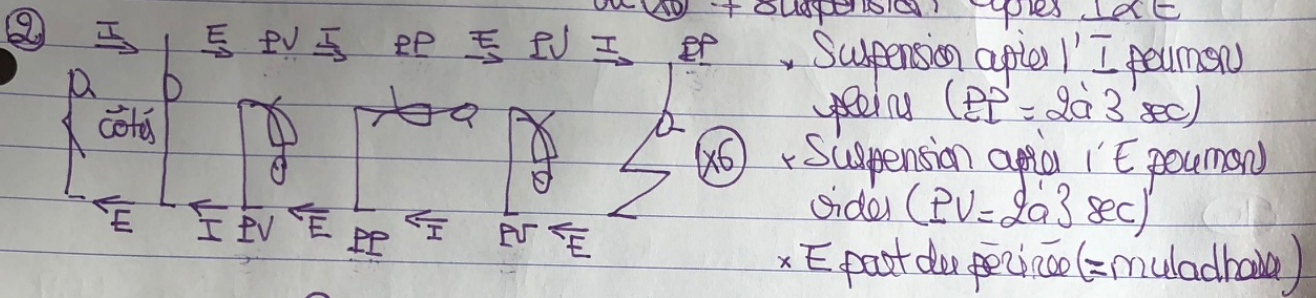 ou (x6) + suspension après I et E
② I E PV I PP E PV I PP
côtés
x6
E I PV E PP I PV E
x Suspension après l'I poumons
pleins (PP = 2 à 3 sec)
x Suspension après l'E poumons
vides (PV = 2 à 3 sec)
x E part du périnée (= muladhara)